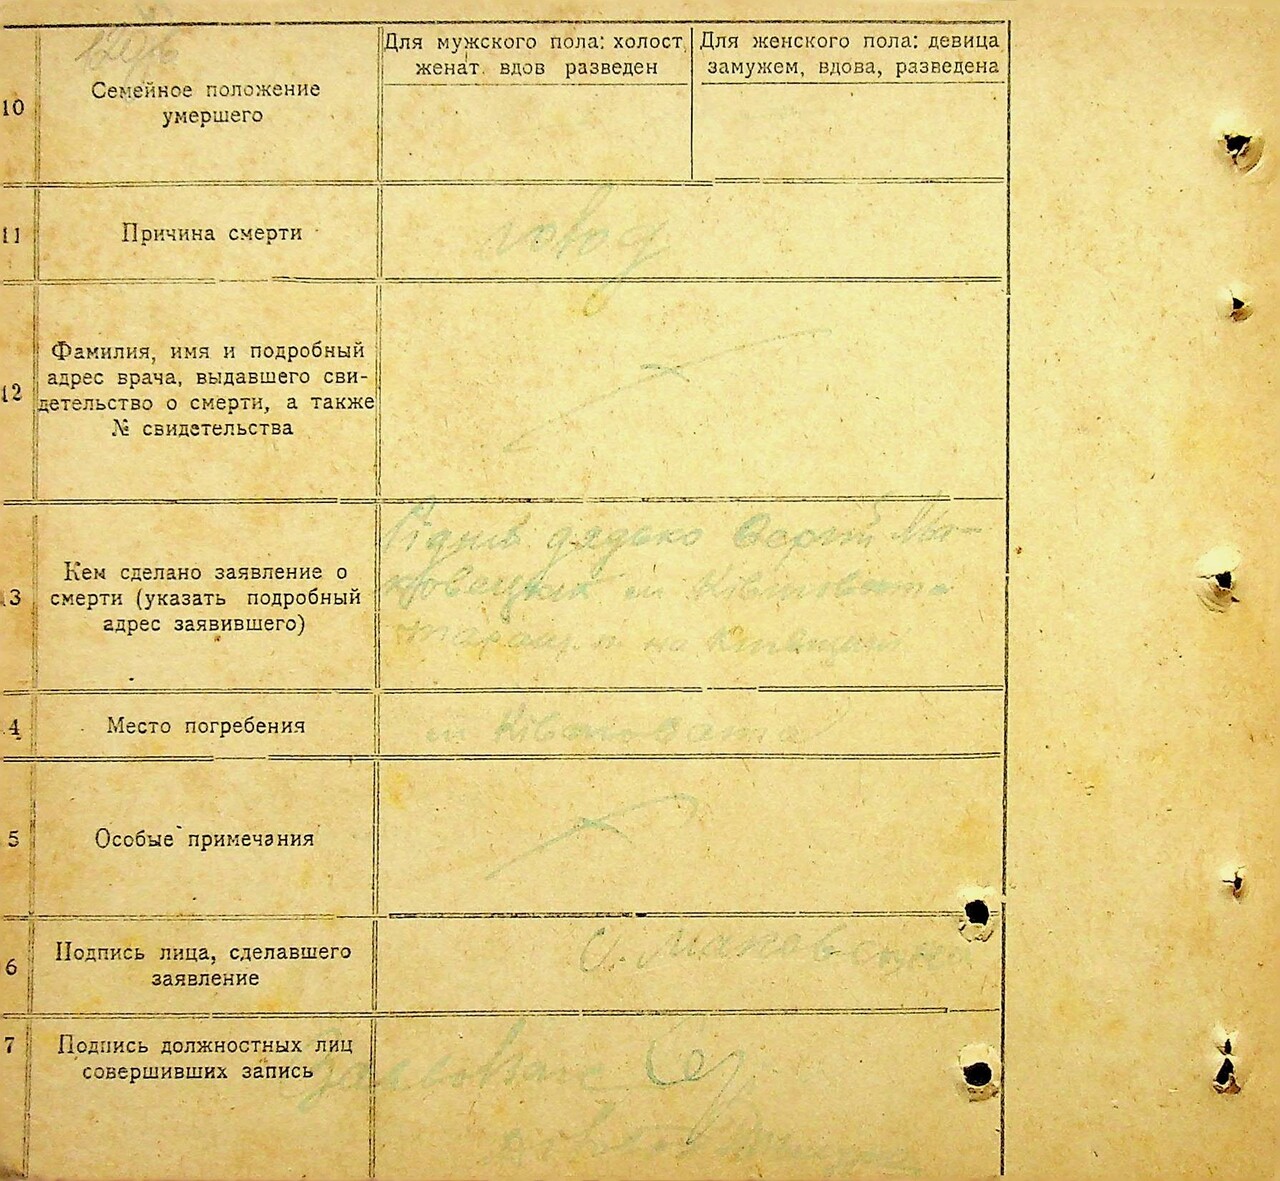 10
Семейное положение
умершего
Для мужского пола: холост,
женат. вдов разведен
Для женского пола: девица
замужем, вдова, разведена
11
Причина смерти
голод
12
Фамилия, имя и подробный
адрес врача, выдавшего сви-
детельство о смерти, а также
№ свидетельства
3
Кем сделано заявление о
смерти (указать подробный
адрес заявившего)
дядько Сергій Ма-
на Київщині
4
Место погребения
5
Особые примечания
6
Подпись лица, сделавшего
заявление
С.
7
Подпись должностных лиц
совершивших запись